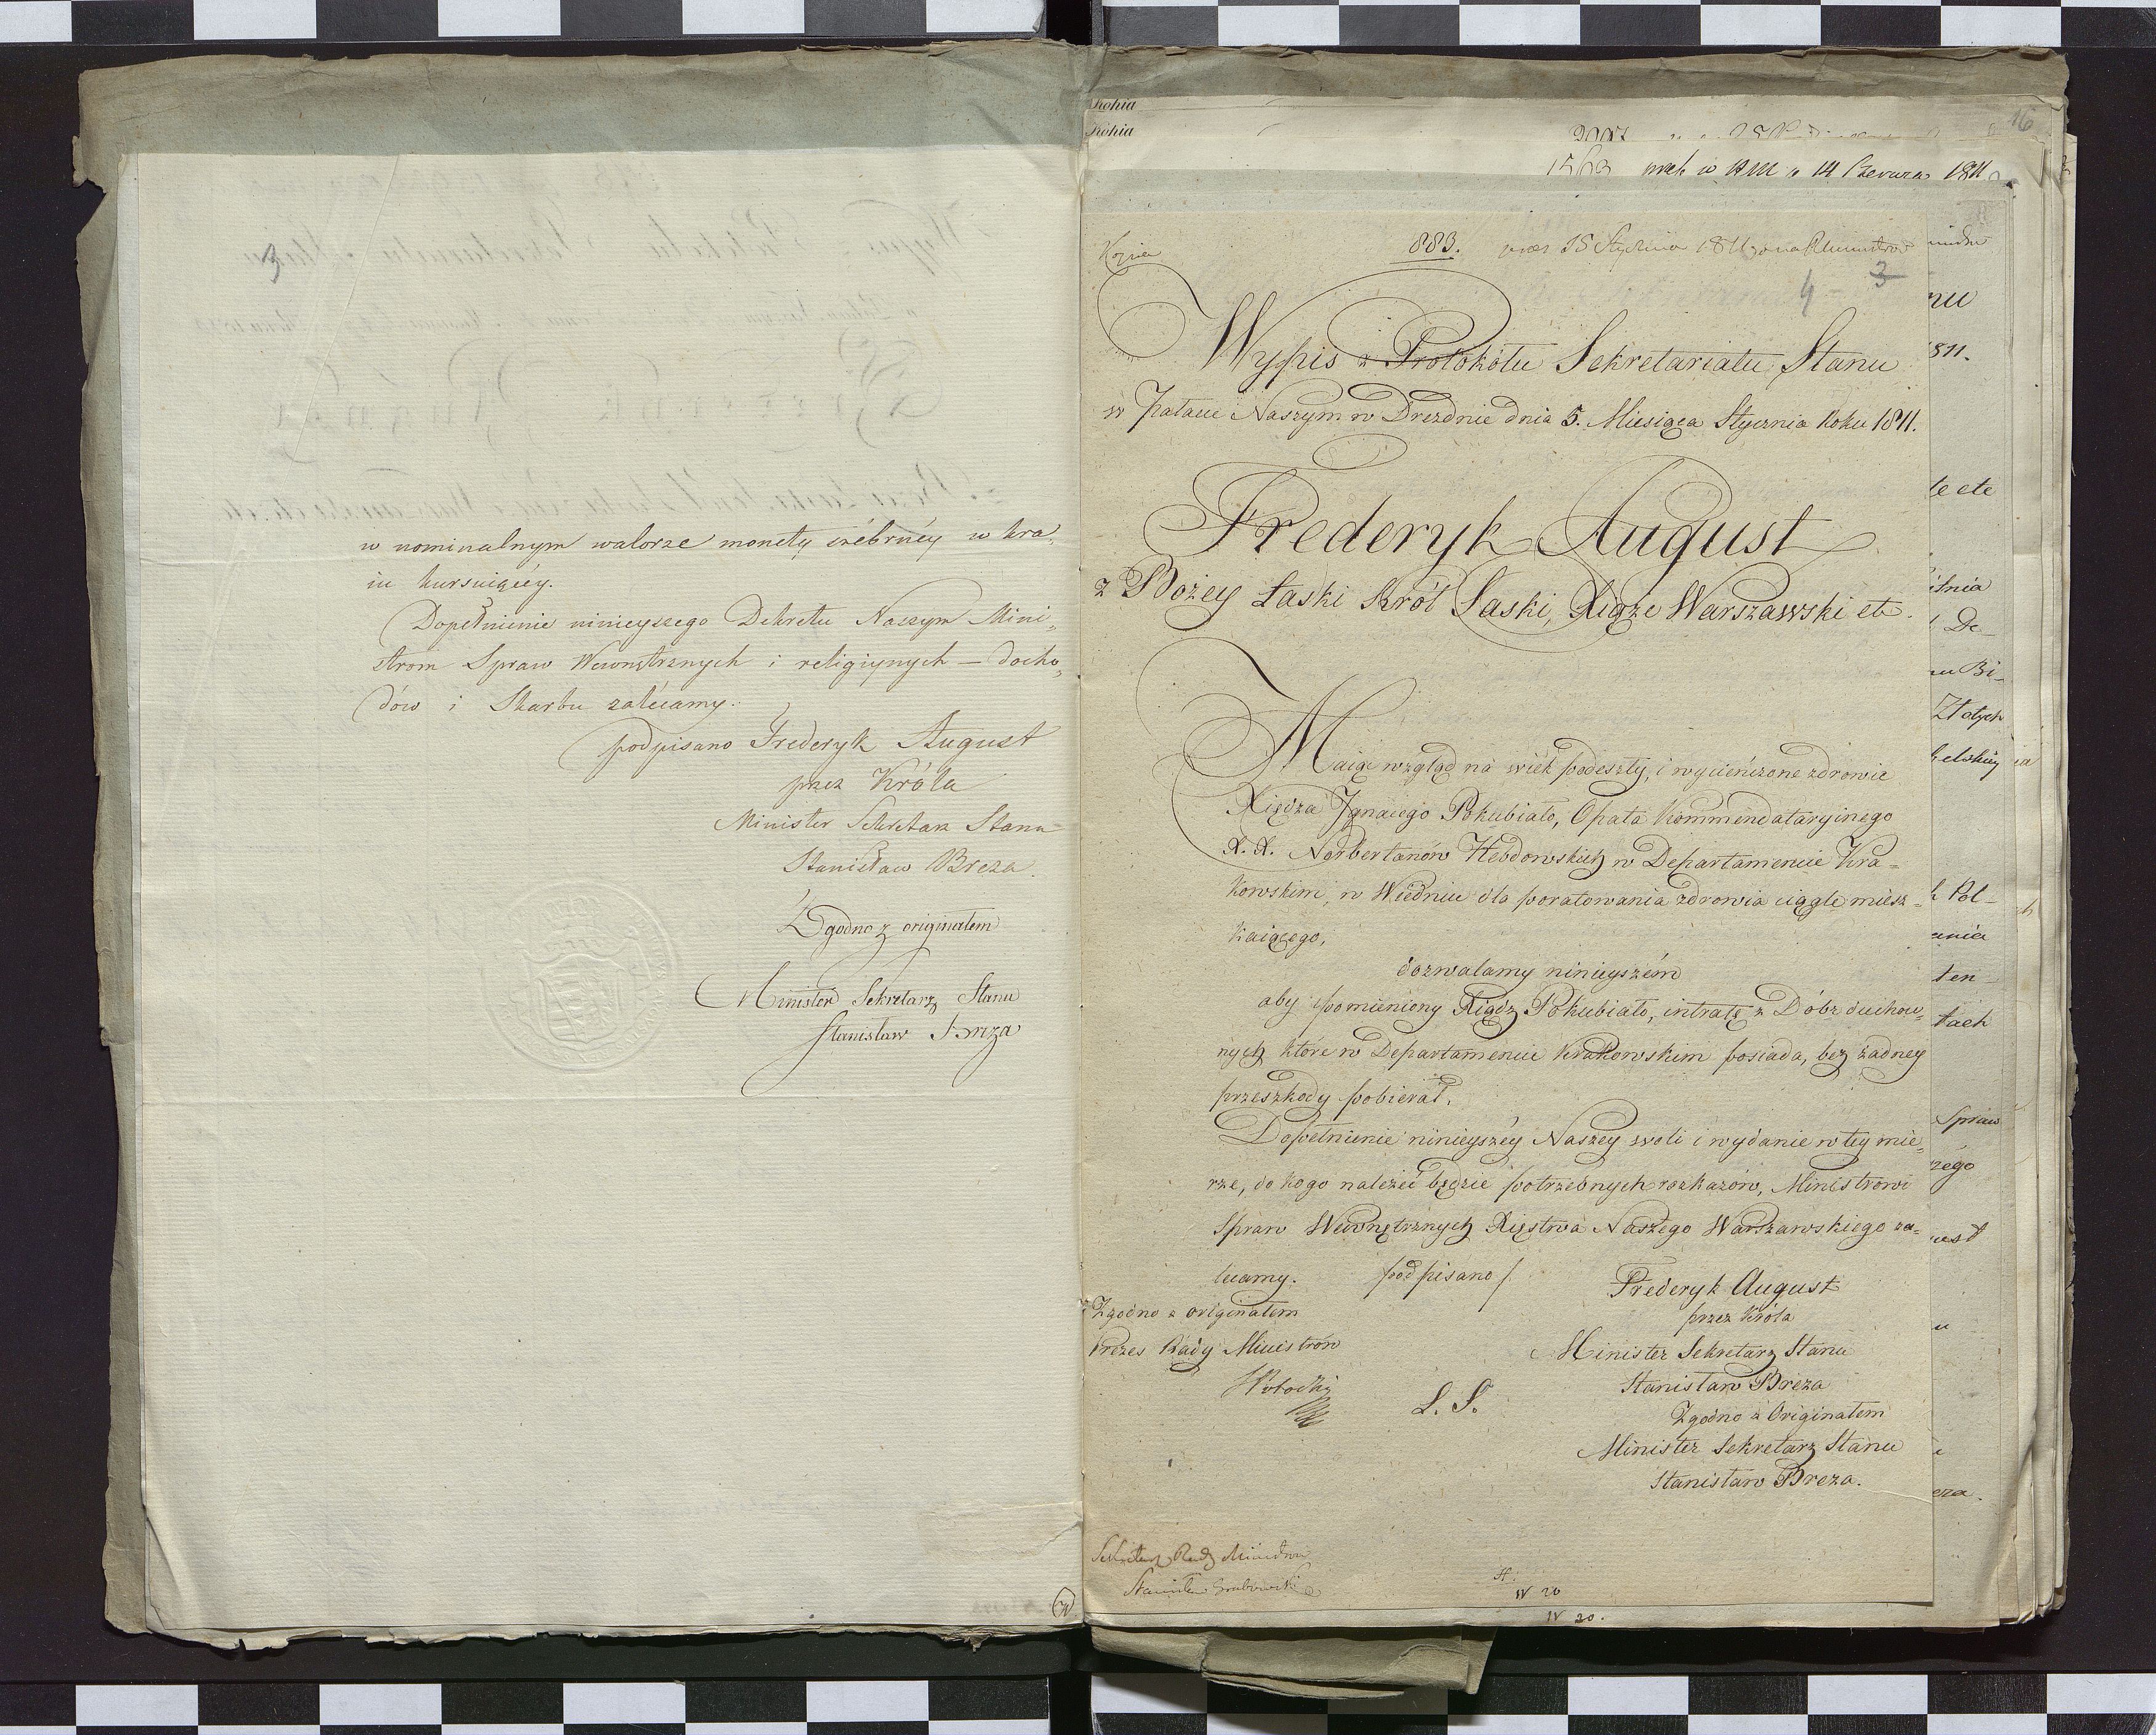 3
w nominalnym walorze monety srébrnéy w kra„
iu kursuiącéy.
Dopełnienie ninieyszego Dekretu Naszym Mini„
strom Spraw Wewnętrznych i religiynych — docho„
dów i Skarbu zalécamy.
podpisano Frederyk August
przez Króla
Minister Sekretarz Stanu
Stanisław Breza.
Zgodno z originałem
Minister Sekretarz Stanu
Stanisław Breza
Kopia
Kopia
16
14 Czerwca 1811
Kopia
883.
15 Stycznia 1811
4 3
Wypis z Protokółu Sekretariatu Stanu
w Pałacu Naszym w Dreznie dnia 5. Miesiąca Stycznia Roku 1811.
Frederyk August
z Bożey Łaski Król Saski, Xiąże Warszawski etc.
Maiąc wzgląd na wiek podeszły, i wycieńczone zdrowie
Xiędza Ignacego Pokubiało, Opata Kommendataryinego
X. X. Norbertanów Hebdowskich w Departamencie Kra=
kowskim, w Wiedniu dla poratowania zdrowia ciągle miesz=
kaiącego,
dozwalamy ninieyszém
aby pomieniony Xiądz Pokubiało, intratę z Dóbr duchow„
nych które w Departamencie Krakowskim posiada, bez żadney
przeszkody pobierał.
Dopełnienie ninieyszéy Naszey woli i wydanie w tey mie„
rze, do kogo należeć będzie potrzebnych rozkazów, Ministrowi
Spraw Wewnętrznych Xięstwa Naszego Warszawskiego za=
lecamy. podpisano/. Frederyk August
przez Króla
Zgodno z originałem
Prezes Rady Ministrów
Minister Sekretarz Stanu
Stanisław Breza
L. S.
Zgodno z Originałem
Minister Sekretarz Stanu
Stanisław Breza.
Sekretarz Rady Ministrów
Stanisław Grabowski
IV 20
IV 20.
nu
1811.
te etc
De-
Bi-
Złotych
Pol-
ania
ten-
tach
Spraw
ust
eza.